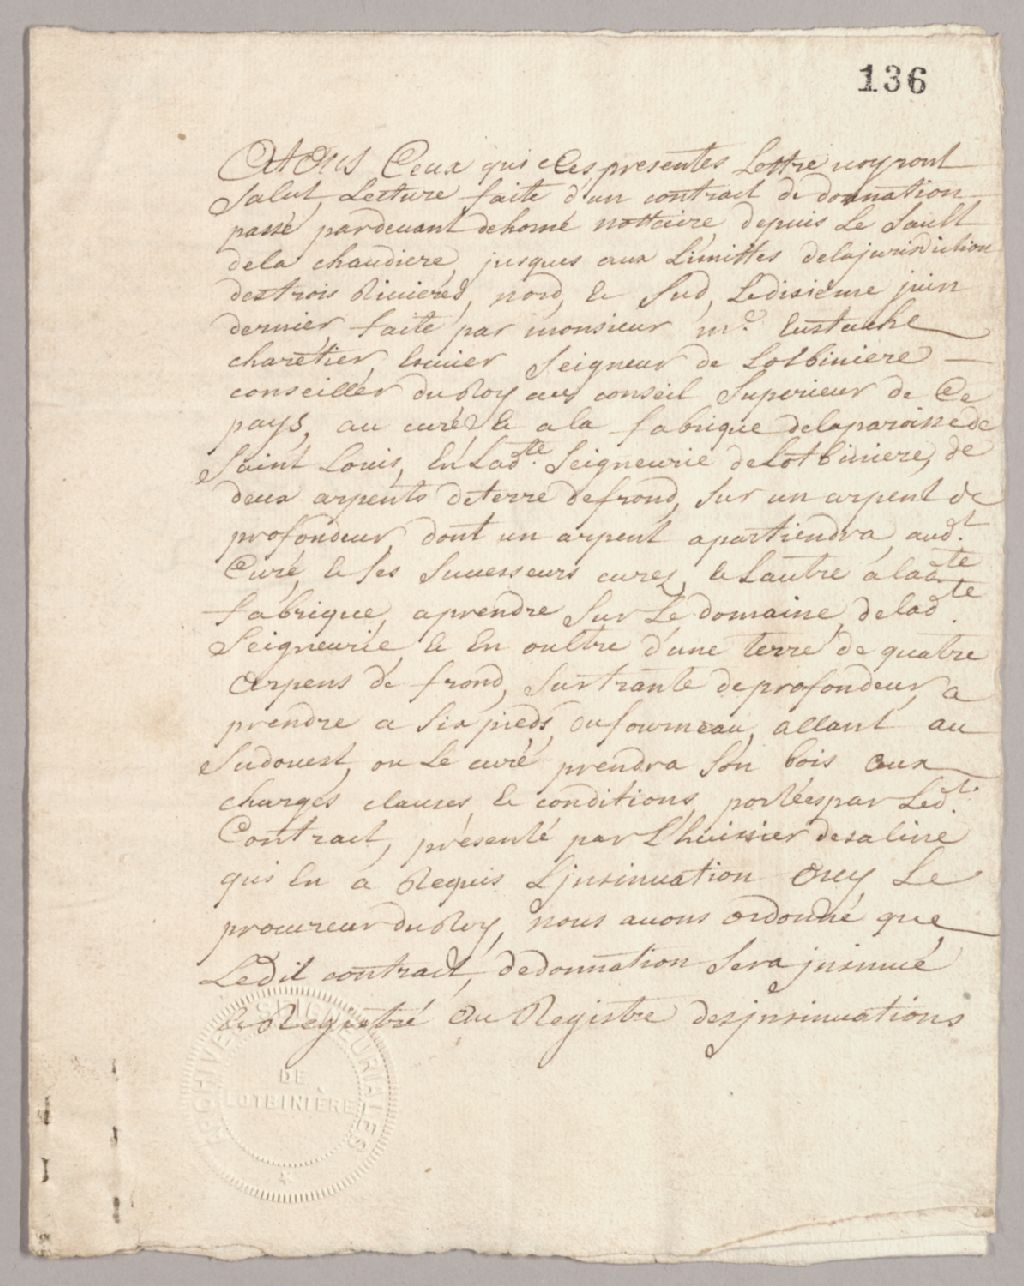 136
A tous Ceux qui Ces presentes Lettre voyront
Salut, Lecture faite d'un contract de donnation
passé pardevant dehorné nottaire, depuis Le Sault
dela chaudiere, jusques aux Limittes delajurisdiction
destrois Rivieres, nord, & Sud, Ledisiéme juin
dernier, faite par monsieur me. Eustache
charétier Ecuier Seigneur de Lotbiniere —
conseillér du Roy aux conseil Superieur de Ce
pays, au curé & a la fabrique delaparoissede
Saint Louis, En Ladte. Seigneurie deLotbiniere, de
deux arpents deterre defrond, sur un arpent de
profondeur, dont un arpent apartiendra, audt.
Curé, & ses Successeurs curez, & Lautre a ladte
fabrique, aprendre Sur Le domaine, delad.te
Seigneurie & En oultre d'une terre de quatre
arpens de frond, Surtrante deprofondeur, a
prendre a Six pieds, du fourneau, allant au
Sudouest, ou Le curé prendra Son bois aux
charges clauses & conditions, portéespar Ledt.
Contract, présenté par L'huissier desaline
qui En a Requis L'jnsinuation Ouy Le
procureur du Roy, nous avons Ordonné que
Ledit contract, dedonnation Sera jnsinué
& Registré Au Registre desjnsinuations
ARCHIVES SEIGNEURIALES
DE
LOTBINIÈRE